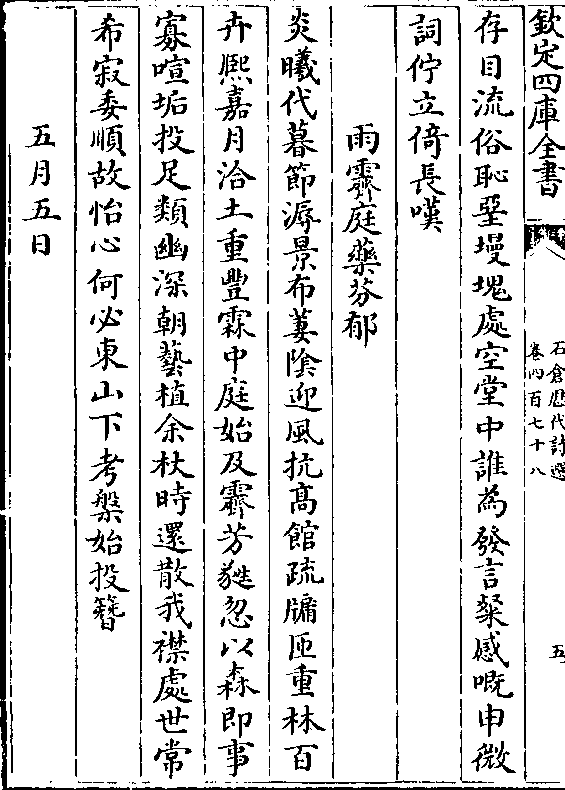 欽定四庫全書
石倉歷代詩選
卷四百七十八
五
存目流俗恥堊墁塊處空堂中誰為發言粲慼嘅申微
詞佇立倚長嘆
雨霽庭藥芬郁
炎曦代暮節溽景布蔞陰迎風抗髙館疏牖匝重林百
卉熙嘉月洽土重豐霖中庭始及霽芳甤忽以森即事
寡喧垢投足類幽深朝藝植余杖時還散我襟處世常
希寂委順故怡心何必東山下考槃始投簪
五月五日